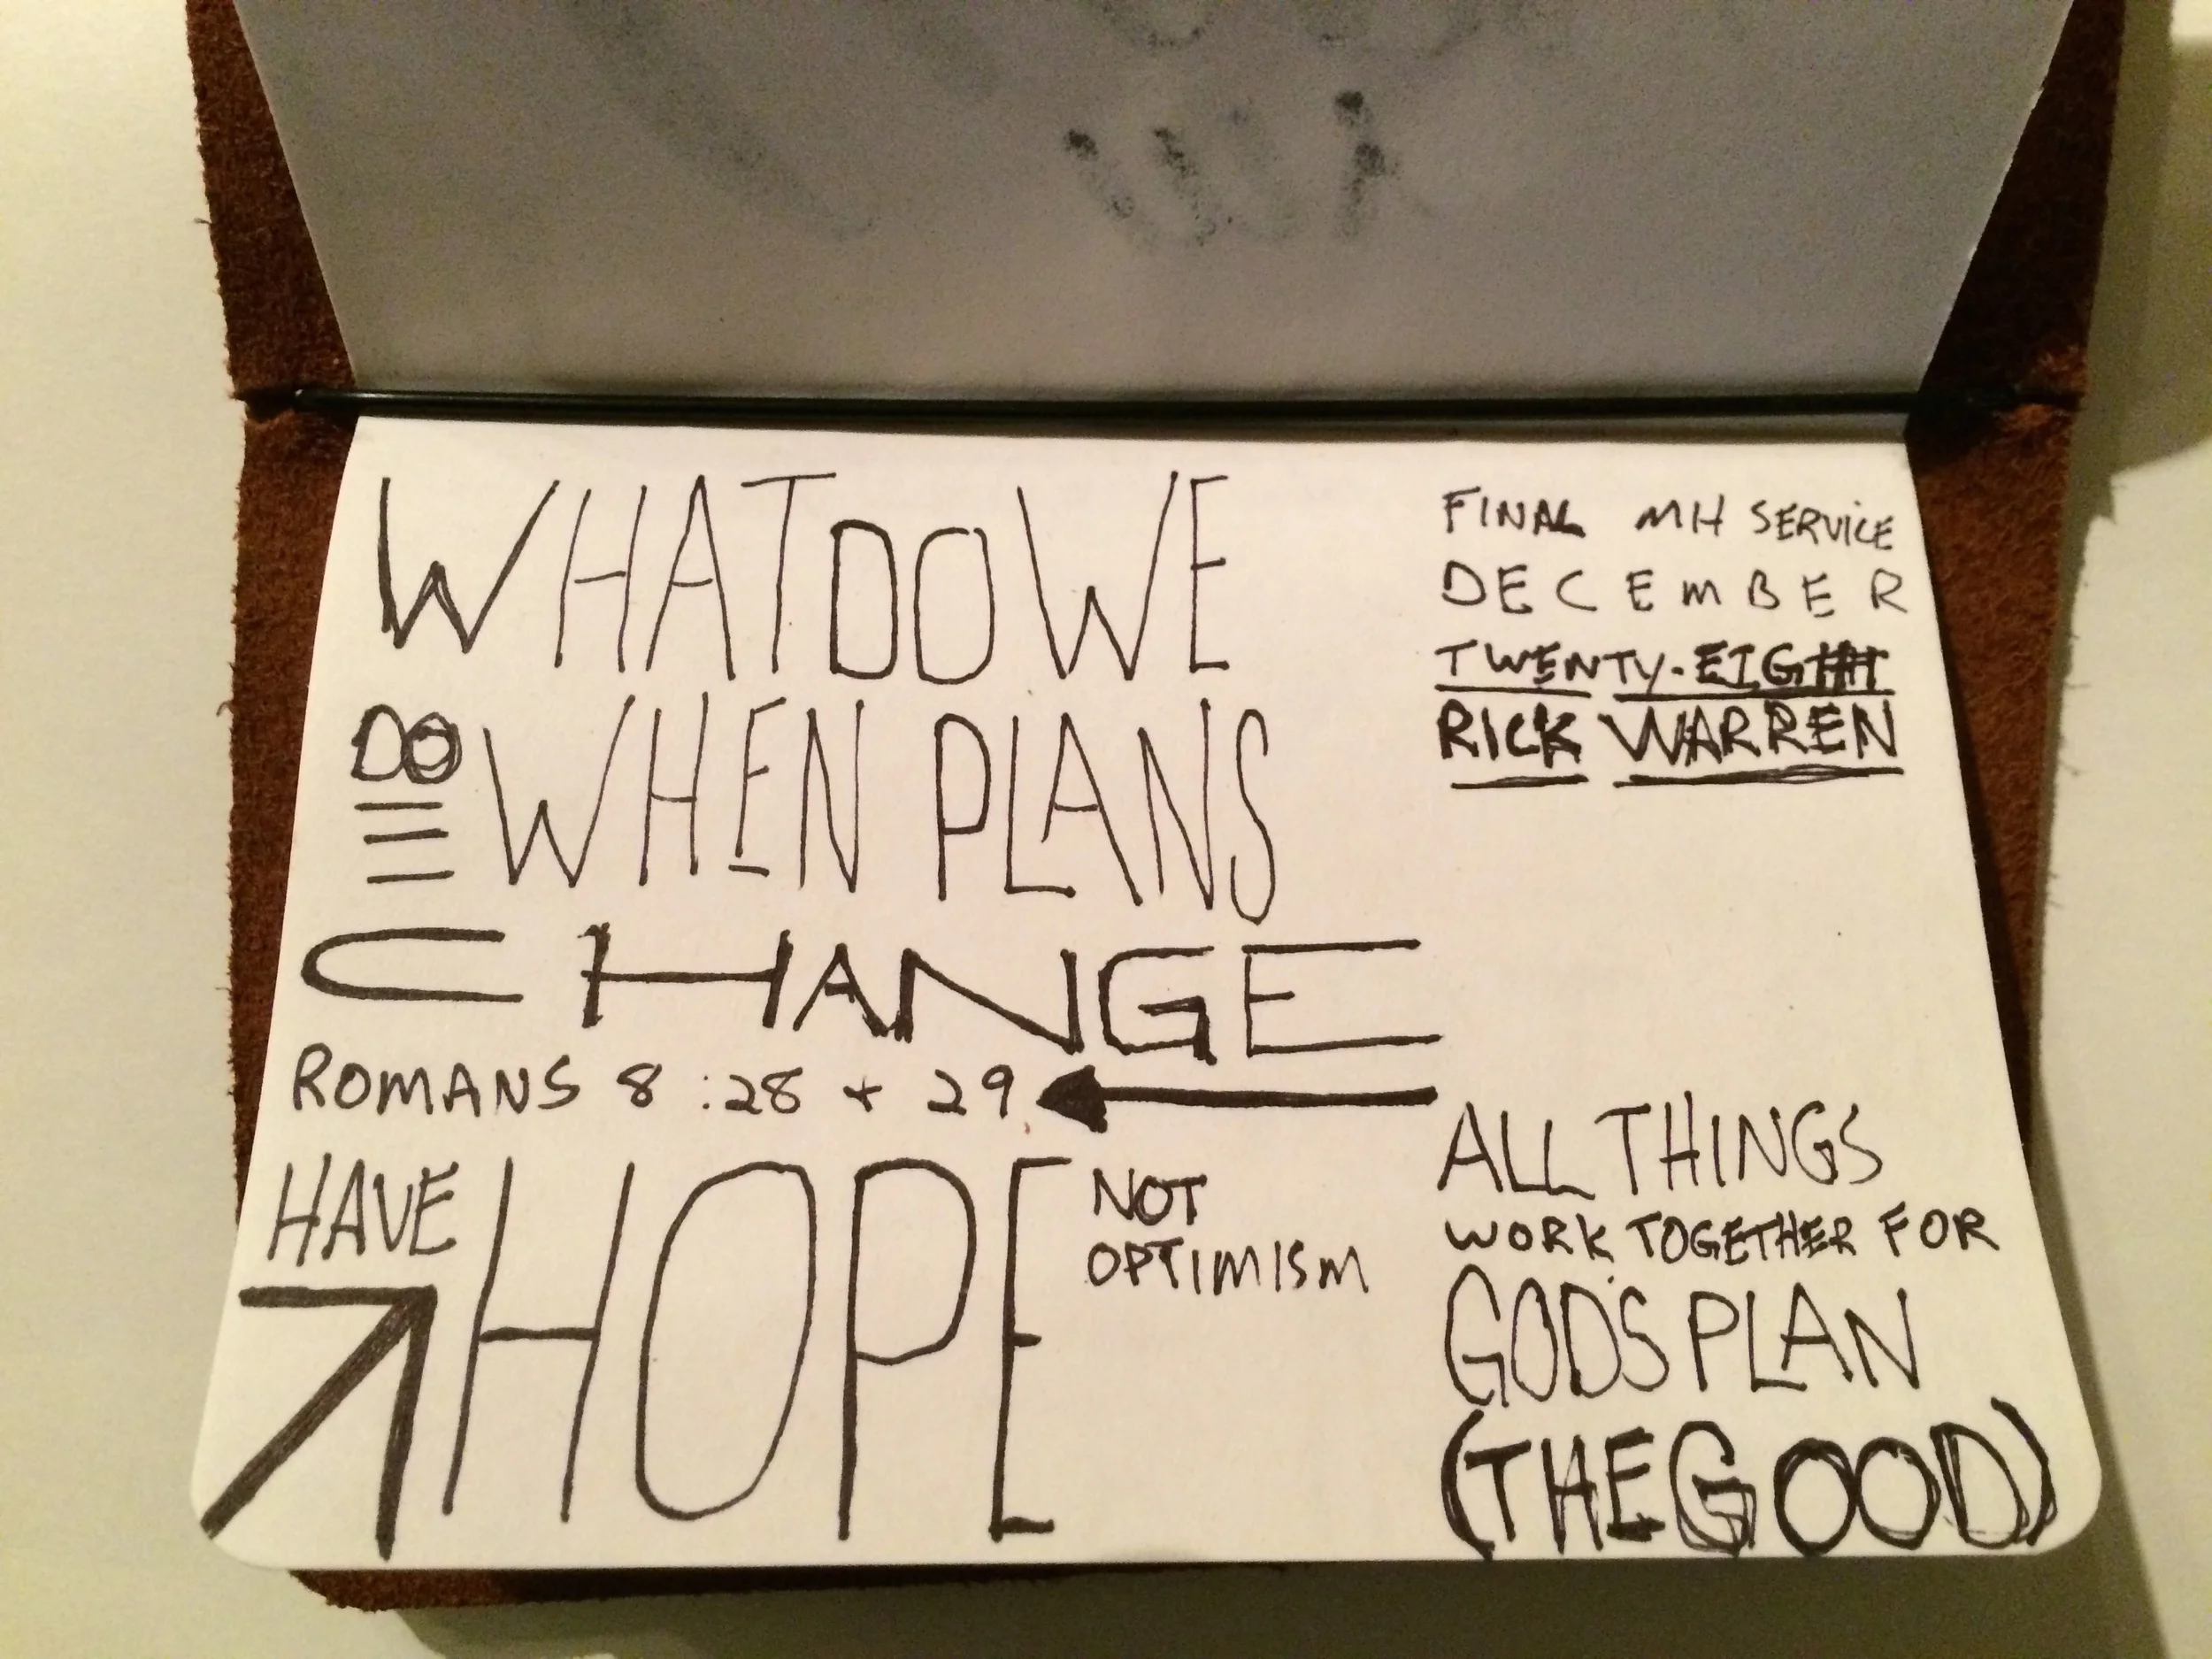 WHAT DO WE
DO WHEN PLANS
CHANGE
ROMANS 8:28 + 29
HAVE HOPE NOT
OPTIMISM
FINAL MH SERVICE
DECEMBER
TWENTY-EIGHT
RICK WARREN
ALL THINGS
WORK TOGETHER FOR
GOD'S PLAN
(THE GOOD)